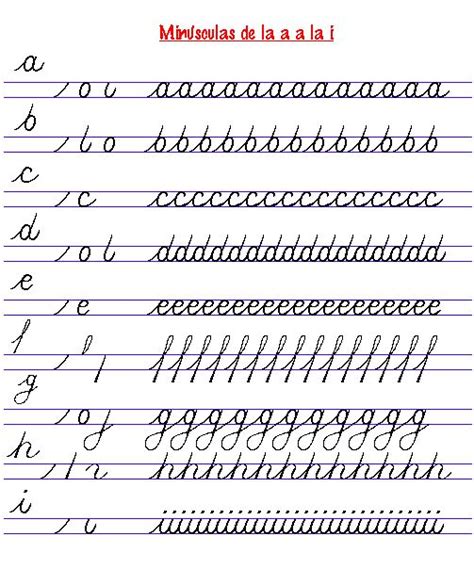 Minúsculas de la a a la i
a
aaaaaaaaaaaaa
b
bbbbbbbbbbbbb
c
cccccccccccccccc
d
dddddddddddddddd
e
eeeeeeeeeeeeeeeeee
f
ffffffffffffff
g
ggggggggggg
h
hhhhhhhhhhhh
i
iiiiiiiiiiiiiiiiiiiiiiiiii